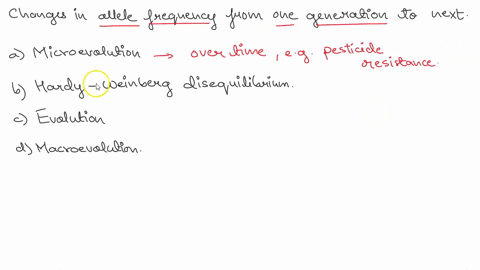 Changes in allele frequency from one generation to next.
a) Microevolution → over time, e.g. pesticide resistance.
b) Hardy-Weinberg disequilibrium.
c) Evolution
d) Macroevolution.